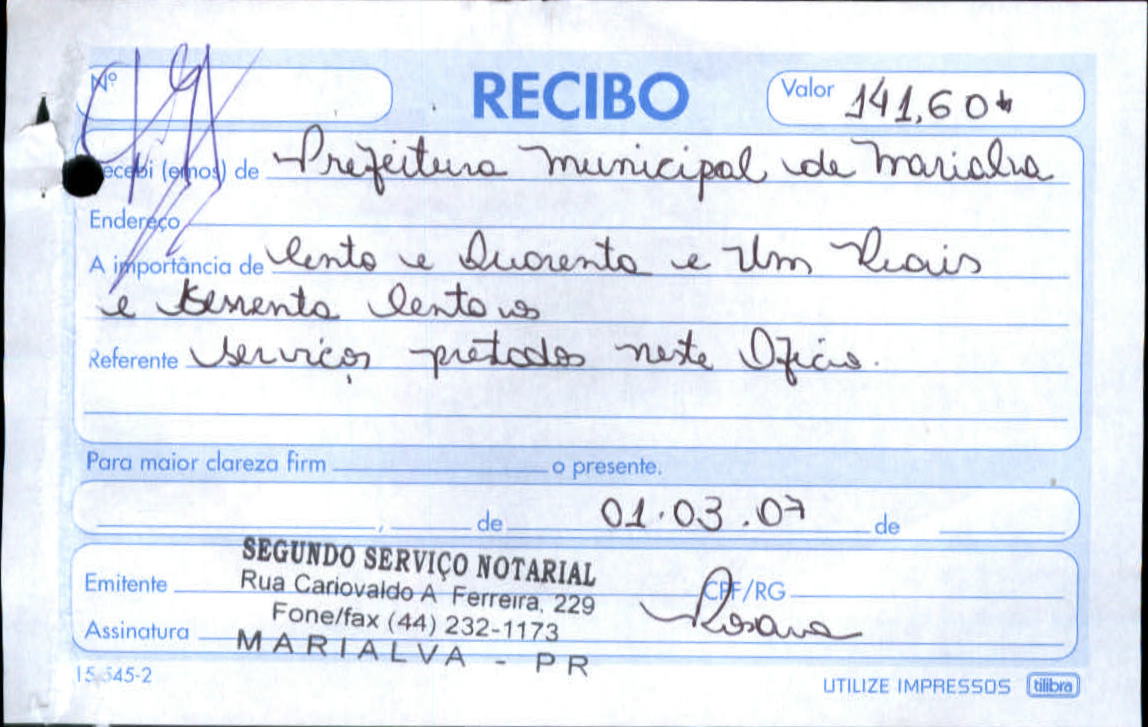 Nº
RECIBO
Valor 141,60
Recebi (emos) de Prefeitura Municipal de Marialva
Endereço
A importância de Cento e Quarenta e Um Reais
e Sessenta Centavos
Referente Serviços pretados neste Oficio.
Para maior clareza firm o presente.
, de 01.03.07 de
SEGUNDO SERVIÇO NOTARIAL
Emitente Rua Cariovaldo A Ferreira, 229 CPF/RG
Fone/fax (44) 232-1173 Rosana
Assinatura MARIALVA - PR
15.545-2
UTILIZE IMPRESSOS tilibra